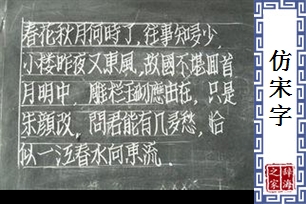 春花秋月何時了,往事知多少,
小楼昨夜又東風,故國不堪回首
月明中,雕栏玉砌應猶在,只是
朱顔改,問君能有几多愁,恰
似一江春水向東流.
仿宋字
辞海
之家